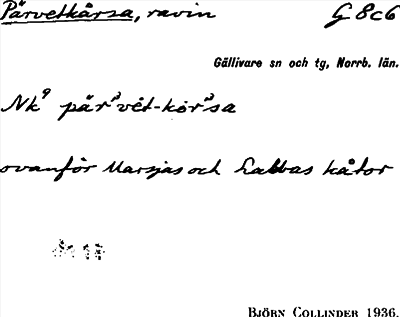 Pärvetkårsa, ravin G 8c6
Gällivare sn och tg, Norrb. län.
Nk⁹ pär²vēt-kör²sa
ovanför Marsjas och Labbas kåtor
BJÖRN COLLINDER 1936.